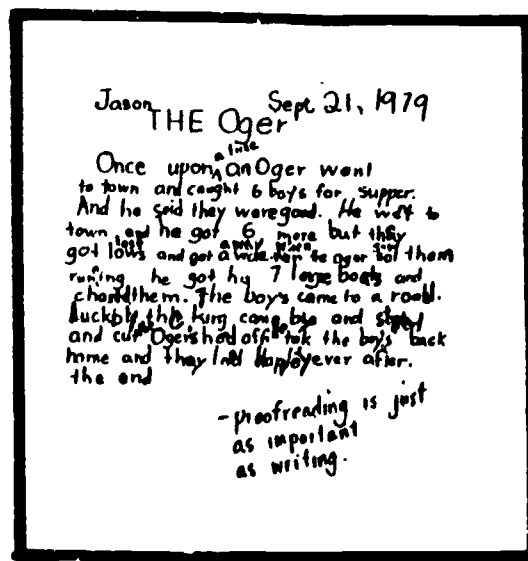 Jason Sept 21, 1979
THE Oger
a time
Once upon an Oger went
to town and caught 6 boys for supper.
And he said they were good. He wet to
town and he got 6 more but they
got and got away when the oger them
runing he got hg 7 boots and
them. The boys came to a road.
luckbly the king came bye and
and cut Ogers hed off tok the boy's back
home and They happley ever after.
the end
-proofreading is just
as important
as writing.